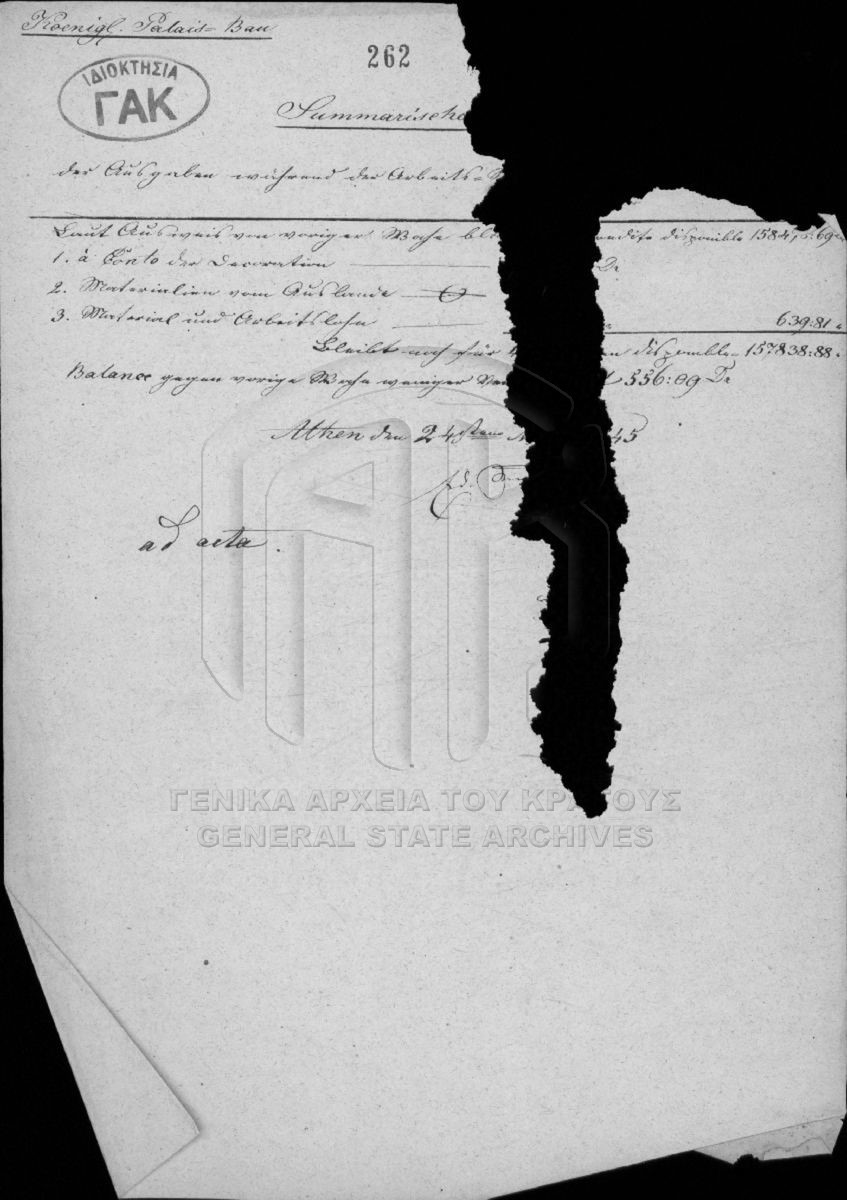 Koenigl. Palais-Bau
262
ΙΔΙΟΚΤΗΣΙΑ
ΓΑΚ
Summarische
der Ausgaben während der Arbeits-
Laut Ausweis von voriger Woche disponible
1. à Conto der Decoration Dr
2. Materialien vom Auslande
3. Material und Arbeitslohn 639:81
Bleibt noch für disponible 157838:88.
Balance gegen vorige Woche weniger 556:09 Dr
Athen den 24sten 45
ad acta.
ΓΕΝΙΚΑ ΑΡΧΕΙΑ ΤΟΥ ΚΡΑΤΟΥΣ
GENERAL STATE ARCHIVES